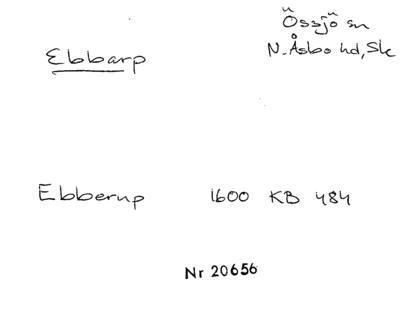 Össjö sn
Ebbarp
N. Åsbo hd, Sk
Ebberup 1600 KB 484
Nr 20656